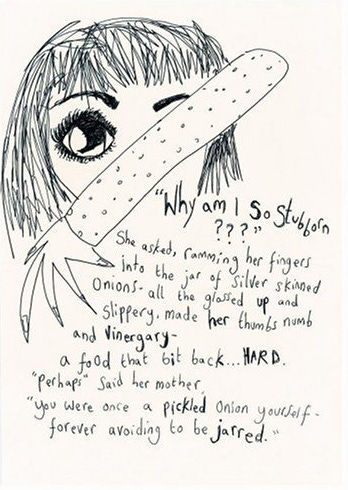 "Why am I So Stubborn
???"
She asked, ramming her fingers
into the jar of Silver skinned
Onions- all the glassed up and
Slippery, made her thumbs numb
and Vinergary-
a food that bit back... HARD.
"perhaps" Said her mother,
"you were once a pickled Onion yourself-
forever avoiding to be jarred."